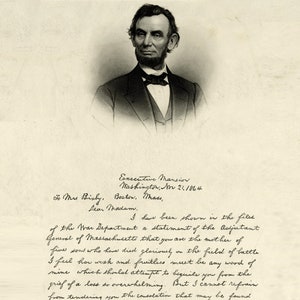 Executive Mansion
Washington, Nov 21, 1864
To Mrs Bixby, Boston, Mass,
Dear Madam,
I have been shown in the files
of the War Department a statement of the Adjutant
General of Massachusetts that you are the mother of
five sons who have died gloriously on the field of battle
I feel how weak and fruitless must be any word of
mine which should attempt to beguile you from the
grief of a loss so overwhelming. But I cannot refrain
from tendering you the consolation that may be found